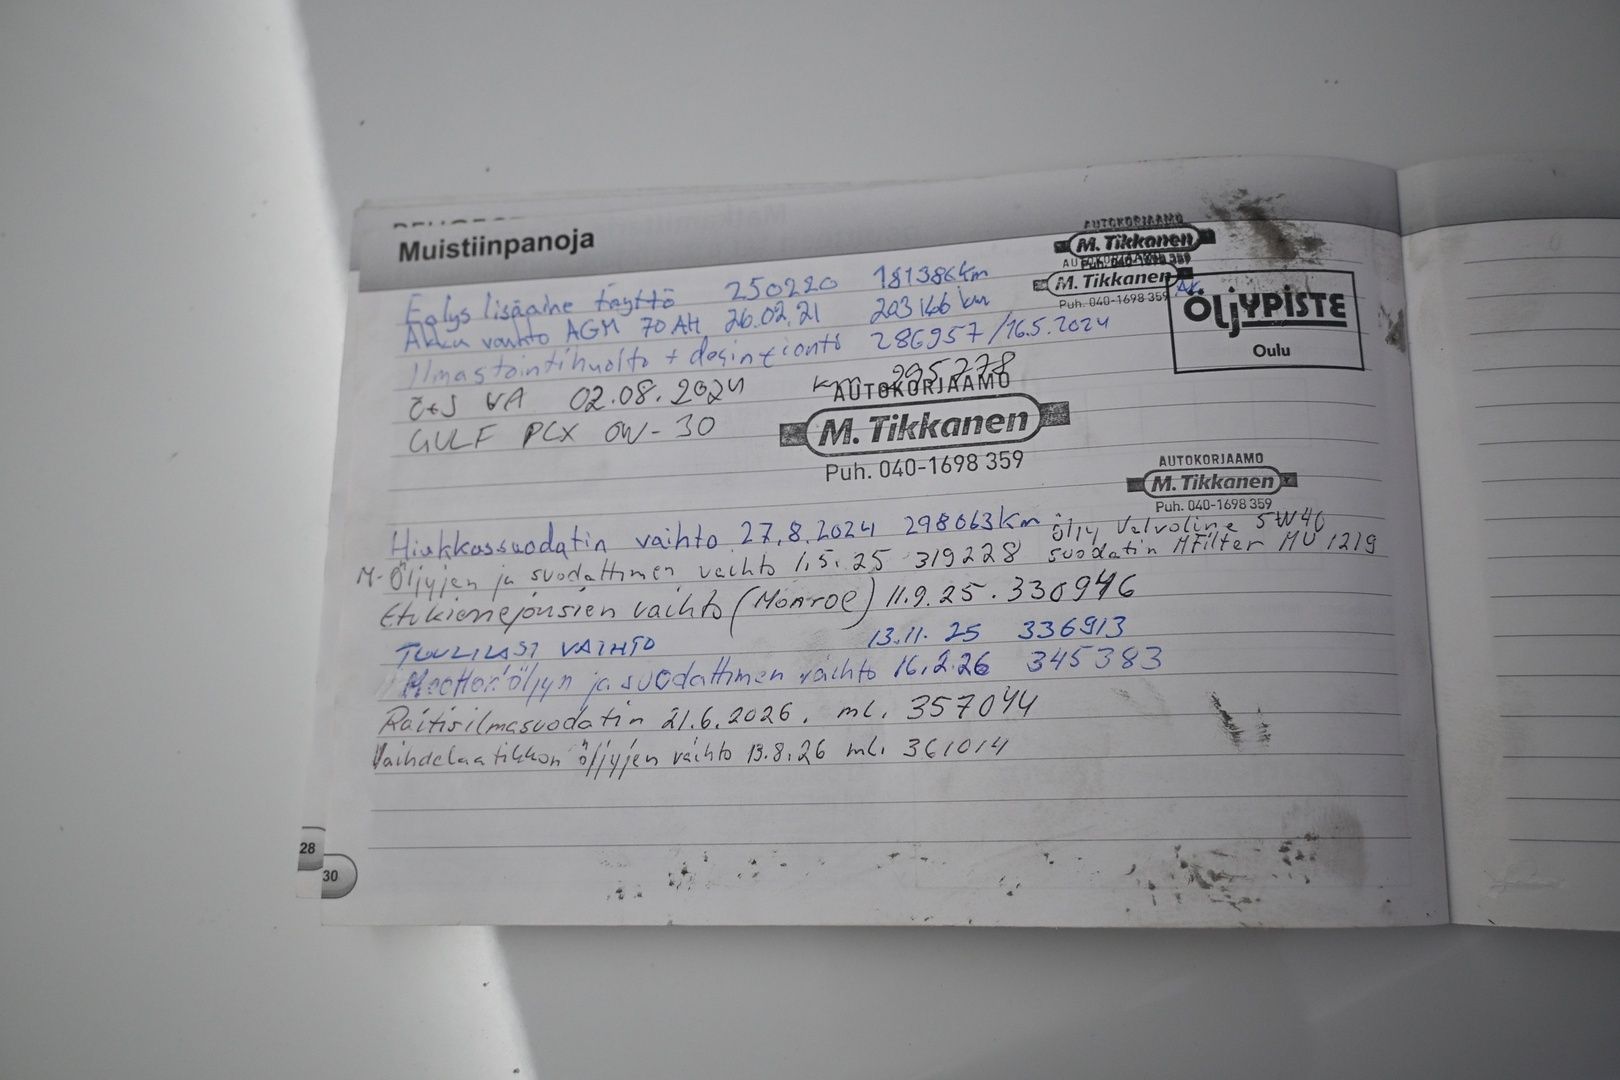 Muistiinpanoja
AUTOKORJAAMO
M. Tikkanen
Puh. 040-1698 359
AUTOKORJAAMO
M. Tikkanen
Puh. 040-1698 359
Eolys lisäaine täyttö 250220 181386km
Akku vaihto AGM 70AH 26.02.21 203166 km
ÖLJYPISTE
Oulu
Ilmastointihuolto + desinfiointi 286957/16.5.2024
Ö+S VA 02.08.2024 km 295778
GULF PCX 0W-30
AUTOKORJAAMO
M. Tikkanen
Puh. 040-1698 359
AUTOKORJAAMO
M. Tikkanen
Puh. 040-1698 359
Hiukkassuodatin vaihto 27.8.2024 298063km
öljy Valvoline 5W40
M-Öljyjen ja suodattimen vaihto 1.5.25 319228 suodatin MFilter MU 1219
Etukierrejousien vaihto (Monroe) 11.9.25. 330946
TUULILASI VAIHTO 13.11.25 336913
Moottoriöljyn ja suodattimen vaihto 16.2.26 345383
Raitisilmasuodatin 21.6.2026. ml. 357044
Vaihdelaatikkon öljyjen vaihto 13.8.26 ml. 361014
28
30